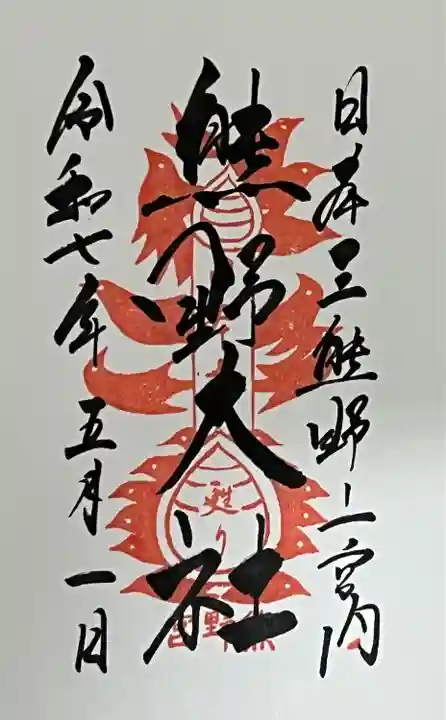 日本三熊野之宮内
熊野大社
甦り
令和七年 五月 一日